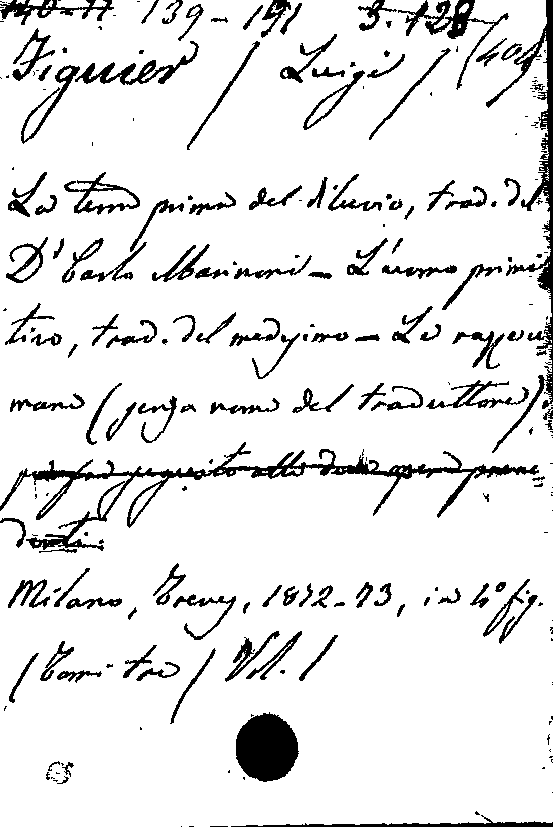 139-191 3.128
Figuier / Luigi / (404)
La terra prima del diluvio, trad. del
Dr Carlo Marinoni - L'uomo primi
tivo, trad. del medesimo - Le razze u
mane (senza nome del traduttore).
seguito alle due opere prece
denti.
Milano, Treves, 1872-73, in 4° fig.
(Tomi tre) Vol. 1